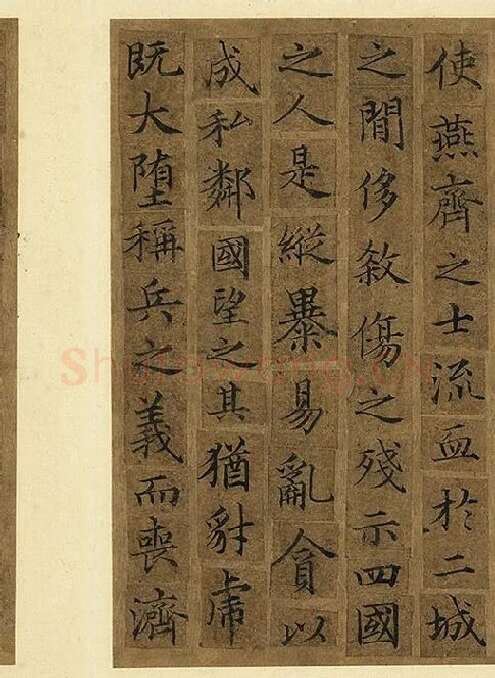 使燕齊之士流血於二城
之閒侈敘傷之殘示四國
之人是縱暴易亂貪以
成私鄰國望之其猶豺虎
既大堕稱兵之義而喪濟